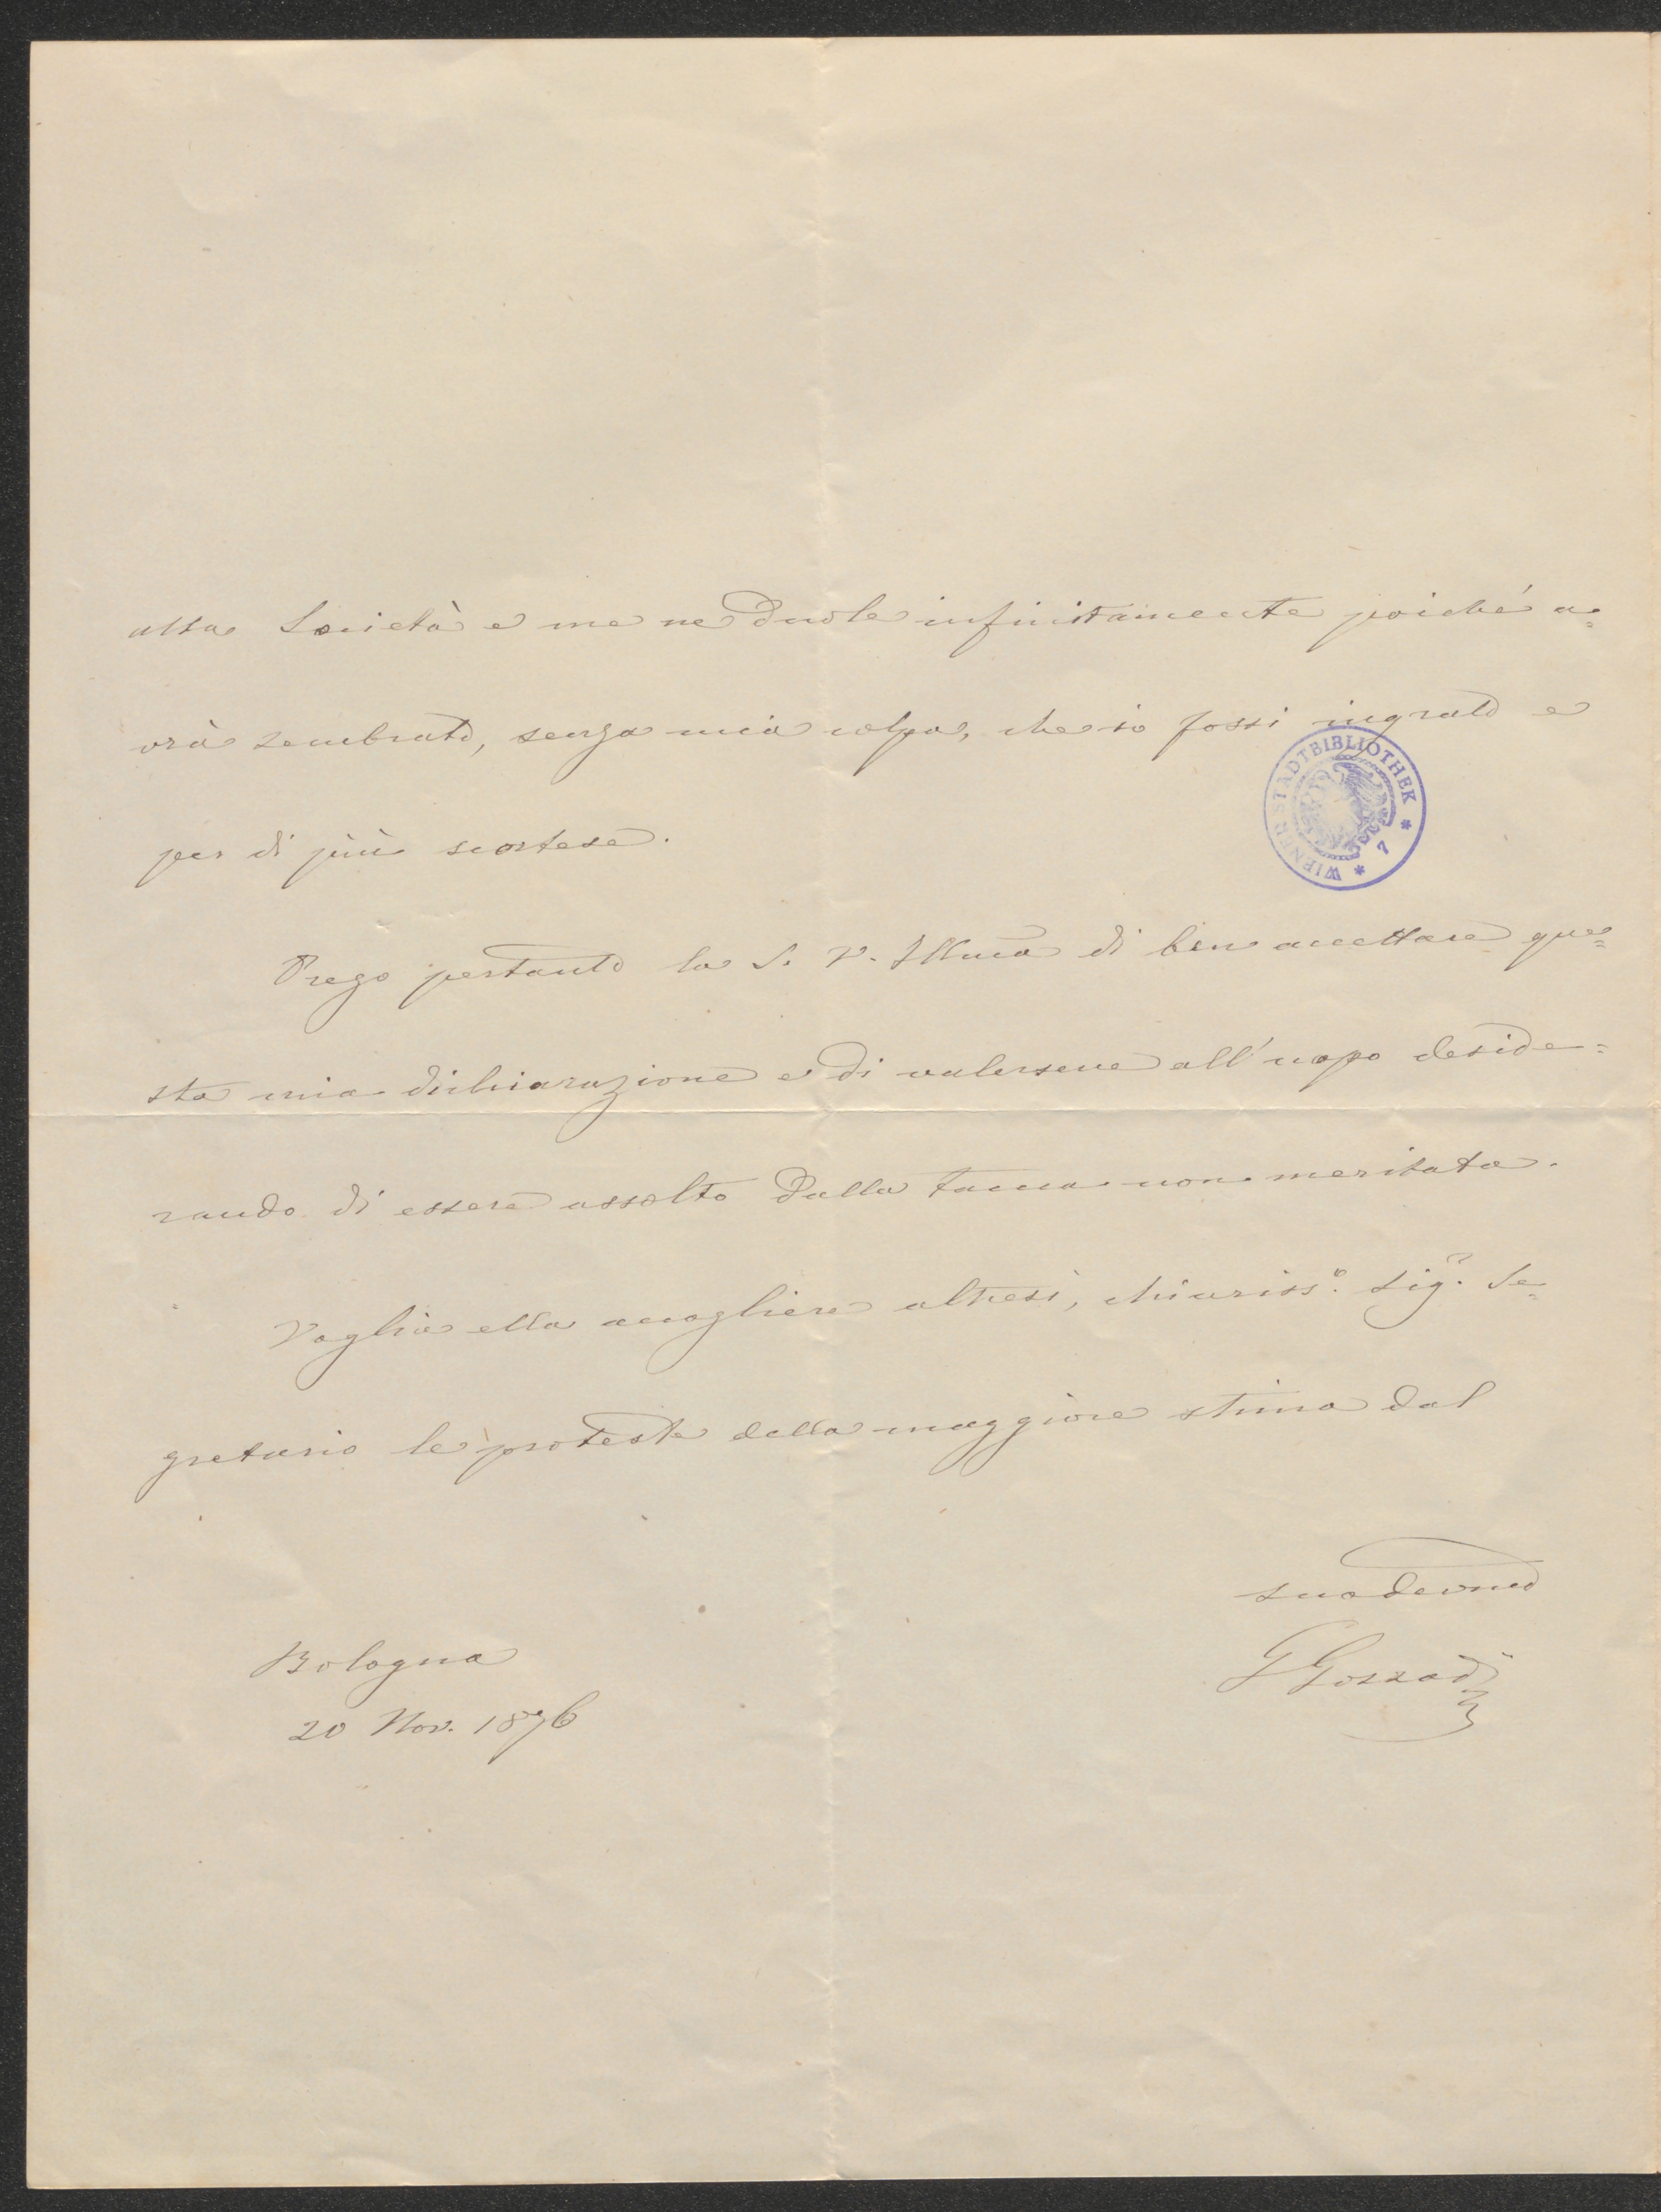 alta Società e me ne duole infinitamente poiché a=
vrà sembrato, senza mia colpa, che io fossi ingrato e
per di più scortese.
Prego pertanto la S. V. Illma di ben accettare que=
sta mia dichiarazione e di valersene all'uopo deside=
rando di essere assolto dalla tacca non meritata.
Voglia ella accogliere altresì, chiariss.o Sig.r Se=
gretario le proteste della maggiore stima dal
suo devmo
GGozzadi
Bologna
20 Nov. 1876
WIENER STADTBIBLIOTHEK * 7 *